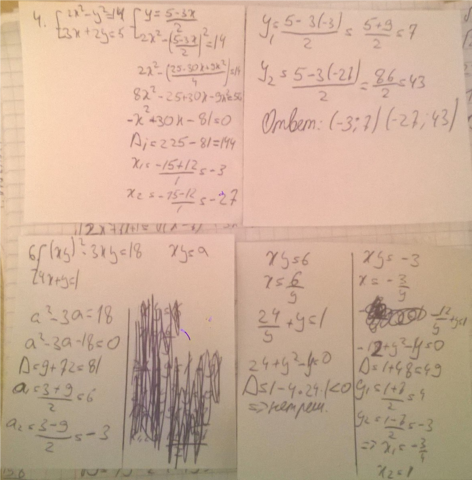 4. {2x²-y²=14 {y=(5-3x)/2
{3x+2y=5 {2x²-((5-3x)/2)²=14
2x²-(25-30x+9x²)/4=14
8x²-25+30x-9x²=56
-x²+30x-81=0
D₁=225-81=144
x₁=(-15+12)/1=-3
x₂=(-15-12)/1=-27
y₁=(5-3(-3))/2=(5+9)/2=7
y₂=(5-3(-27))/2=86/2=43
Ответ: (-3;7) (-27;43)
6) {(xy)²-3xy=18 xy=a
{4x+y=1
a²-3a=18
a²-3a-18=0
D=9+72=81
a=(3+9)/2=6
a₂=(3-9)/2=-3
xy=6
x=6/y
24/y+y=1
24+y²-y=0
D=1-4·24·1<0
=> нет реш.
xy=-3
x=-3/y
-12/y+y=1
-12+y²-y=0
D=1+48=49
y₁=(1+7)/2=4
y₂=(1-7)/2=-3
=> x₁=-3/4
x₂=1